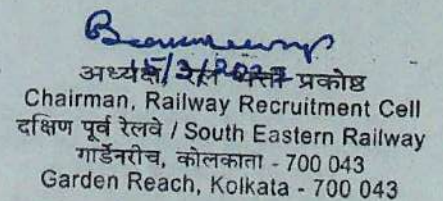 अध्यक्ष, रेल प्रकोष्ठ
Chairman, Railway Recruitment Cell
दक्षिण पूर्व रेलवे / South Eastern Railway
गार्डेनरीच, कोलकाता - 700 043
Garden Reach, Kolkata - 700 043